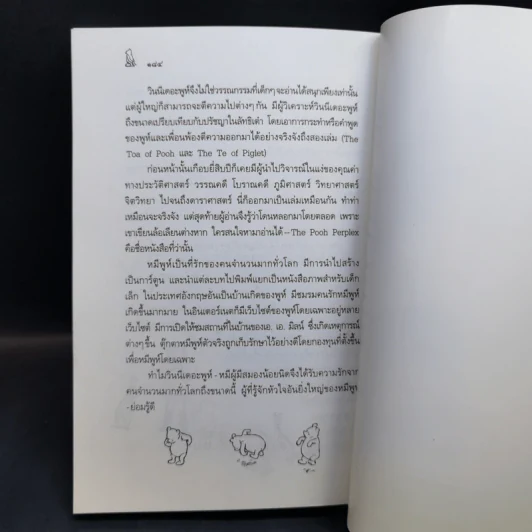 ๑๘๔
วินนีเดอะพูห์จึงไม่ใช่วรรณกรรมที่เด็กๆ จะอ่านได้สนุกเพียงเท่านั้น
แต่ผู้ใหญ่ก็สามารถจะตีความไปต่างๆ กัน มีผู้วิเคราะห์วินนีเดอะพูห์
ถึงขนาดเปรียบเทียบกับปรัชญาในลัทธิเต๋า โดยเอาการกระทำหรือคำพูด
ของพูห์และเพื่อนพ้องตีความออกมาได้อย่างจริงจังถึงสองเล่ม (The
Toa of Pooh และ The Te of Piglet)
ก่อนหน้านั้นเกือบยี่สิบปีก็เคยมีผู้นำไปวิจารณ์ในแง่ของคุณค่า
ทางประวัติศาสตร์ วรรณคดี โบราณคดี ภูมิศาสตร์ วิทยาศาสตร์
จิตวิทยา ไปจนถึงดาราศาสตร์ นี่ก็ออกมาเป็นเล่มเหมือนกัน ทำท่า
เหมือนจะจริงจัง แต่สุดท้ายผู้อ่านจึงรู้ว่าโดนหลอกมาโดยตลอด เพราะ
เขาเขียนล้อเลียนต่างหาก ใครสนใจหามาอ่านได้ – The Pooh Perplex
คือชื่อหนังสือที่ว่านั้น
หมีพูห์เป็นที่รักของคนจำนวนมากทั่วโลก มีการนำไปสร้าง
เป็นการ์ตูน และนำแต่ละบทไปพิมพ์แยกเป็นหนังสือภาพสำหรับเด็ก
เล็ก ในประเทศอังกฤษอันเป็นบ้านเกิดของพูห์ มีชมรมคนรักหมีพูห์
เกิดขึ้นมากมาย ในอินเตอร์เนตก็มีเว็บไซต์ของพูห์โดยเฉพาะอยู่หลาย
เว็บไซต์ มีการเปิดให้ชมสถานที่ในบ้านของเอ. เอ. มิลน์ ซึ่งเกิดเหตุการณ์
ต่างๆ ขึ้น ตุ๊กตาหมีพูห์ตัวจริงถูกเก็บรักษาไว้อย่างดีโดยกองทุนที่ตั้งขึ้น
เพื่อหมีพูห์โดยเฉพาะ
ทำไมวินนีเดอะพูห์ - หมีผู้มีสมองน้อยนิดจึงได้รับความรักจาก
คนจำนวนมากทั่วโลกถึงขนาดนี้ ผู้ที่รู้จักหัวใจอันยิ่งใหญ่ของหมีพูห์
- ย่อมรู้ดี